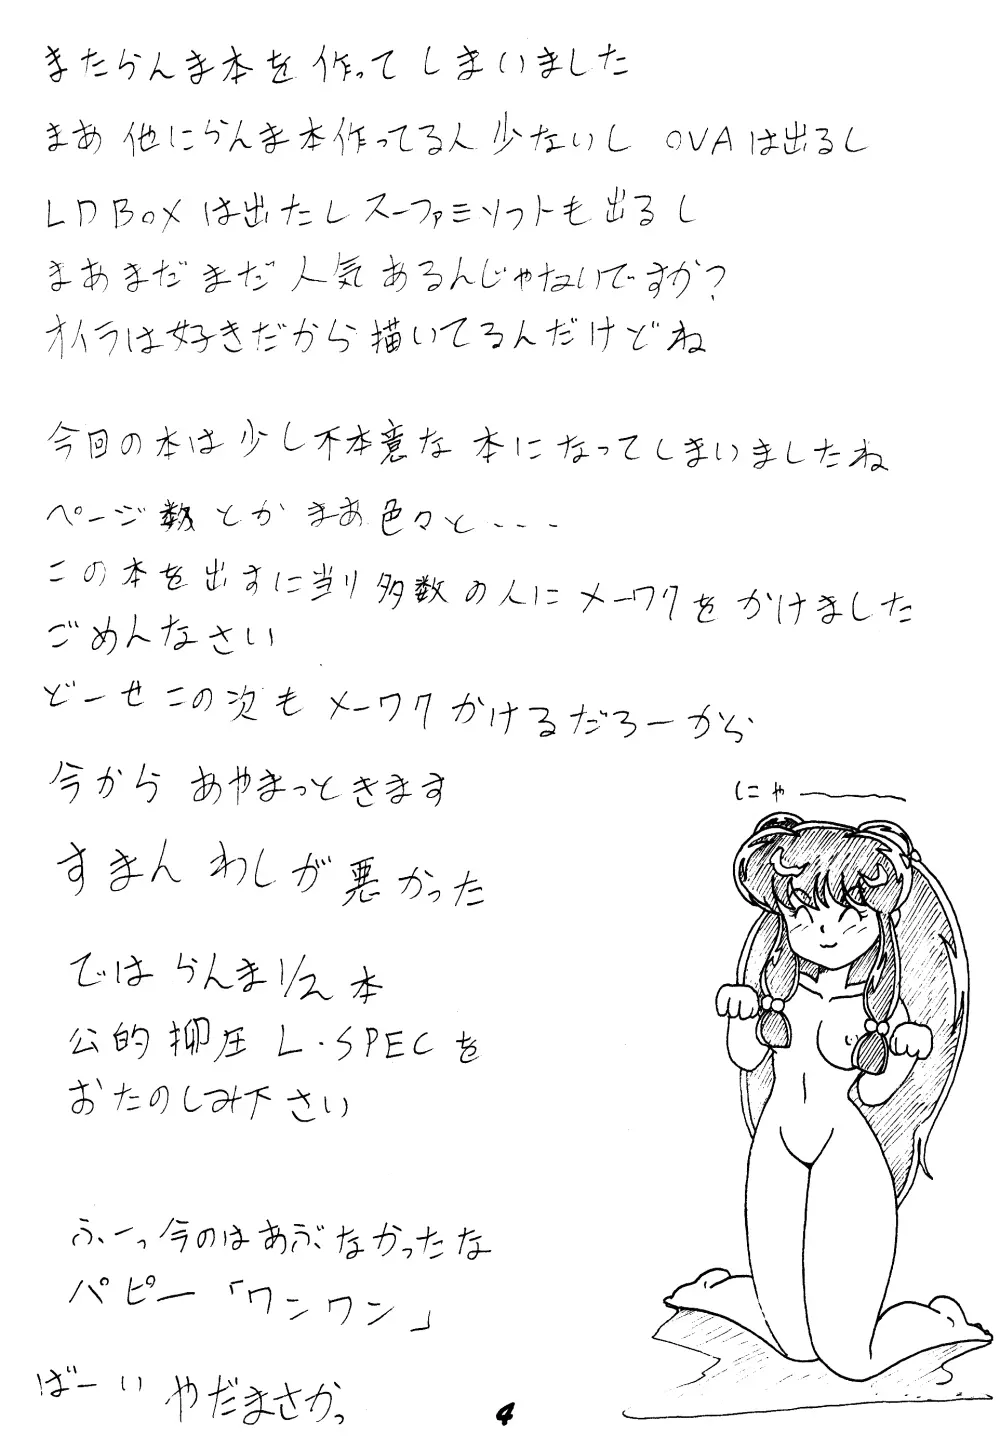 またらんま本を作ってしまいました
まあ他にらんま本作ってる人少ないし OVAは出るし
LDBOXは出たしスーファミソフトも出るし
まあまだまだ人気あるんじゃないですか?
オイラは好きだから描いてるんだけどね
今回の本は少し不本意な本になってしまいましたね
ページ数とかまあ色々と・・・
この本を出すに当り多数の人にメーワクをかけました
ごめんなさい
どーせこの次もメーワクかけるだろーから
今からあやまっときます
すまんわしが悪かった
ではらんま1/2本
公的抑圧 L・SPECを
おたのしみ下さい
にゃ――
ふーっ今のはあぶなかったな
パピー「ワンワン」
ばーい やだまさかっ
4